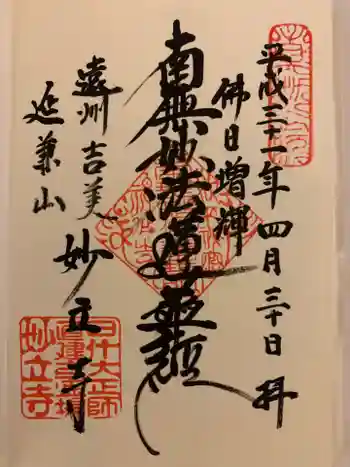 平成三十一年四月三十日拝
佛日増輝
南無妙法蓮華経
遠州吉美
妙立寺
延兼山
日什大正師
妙立寺